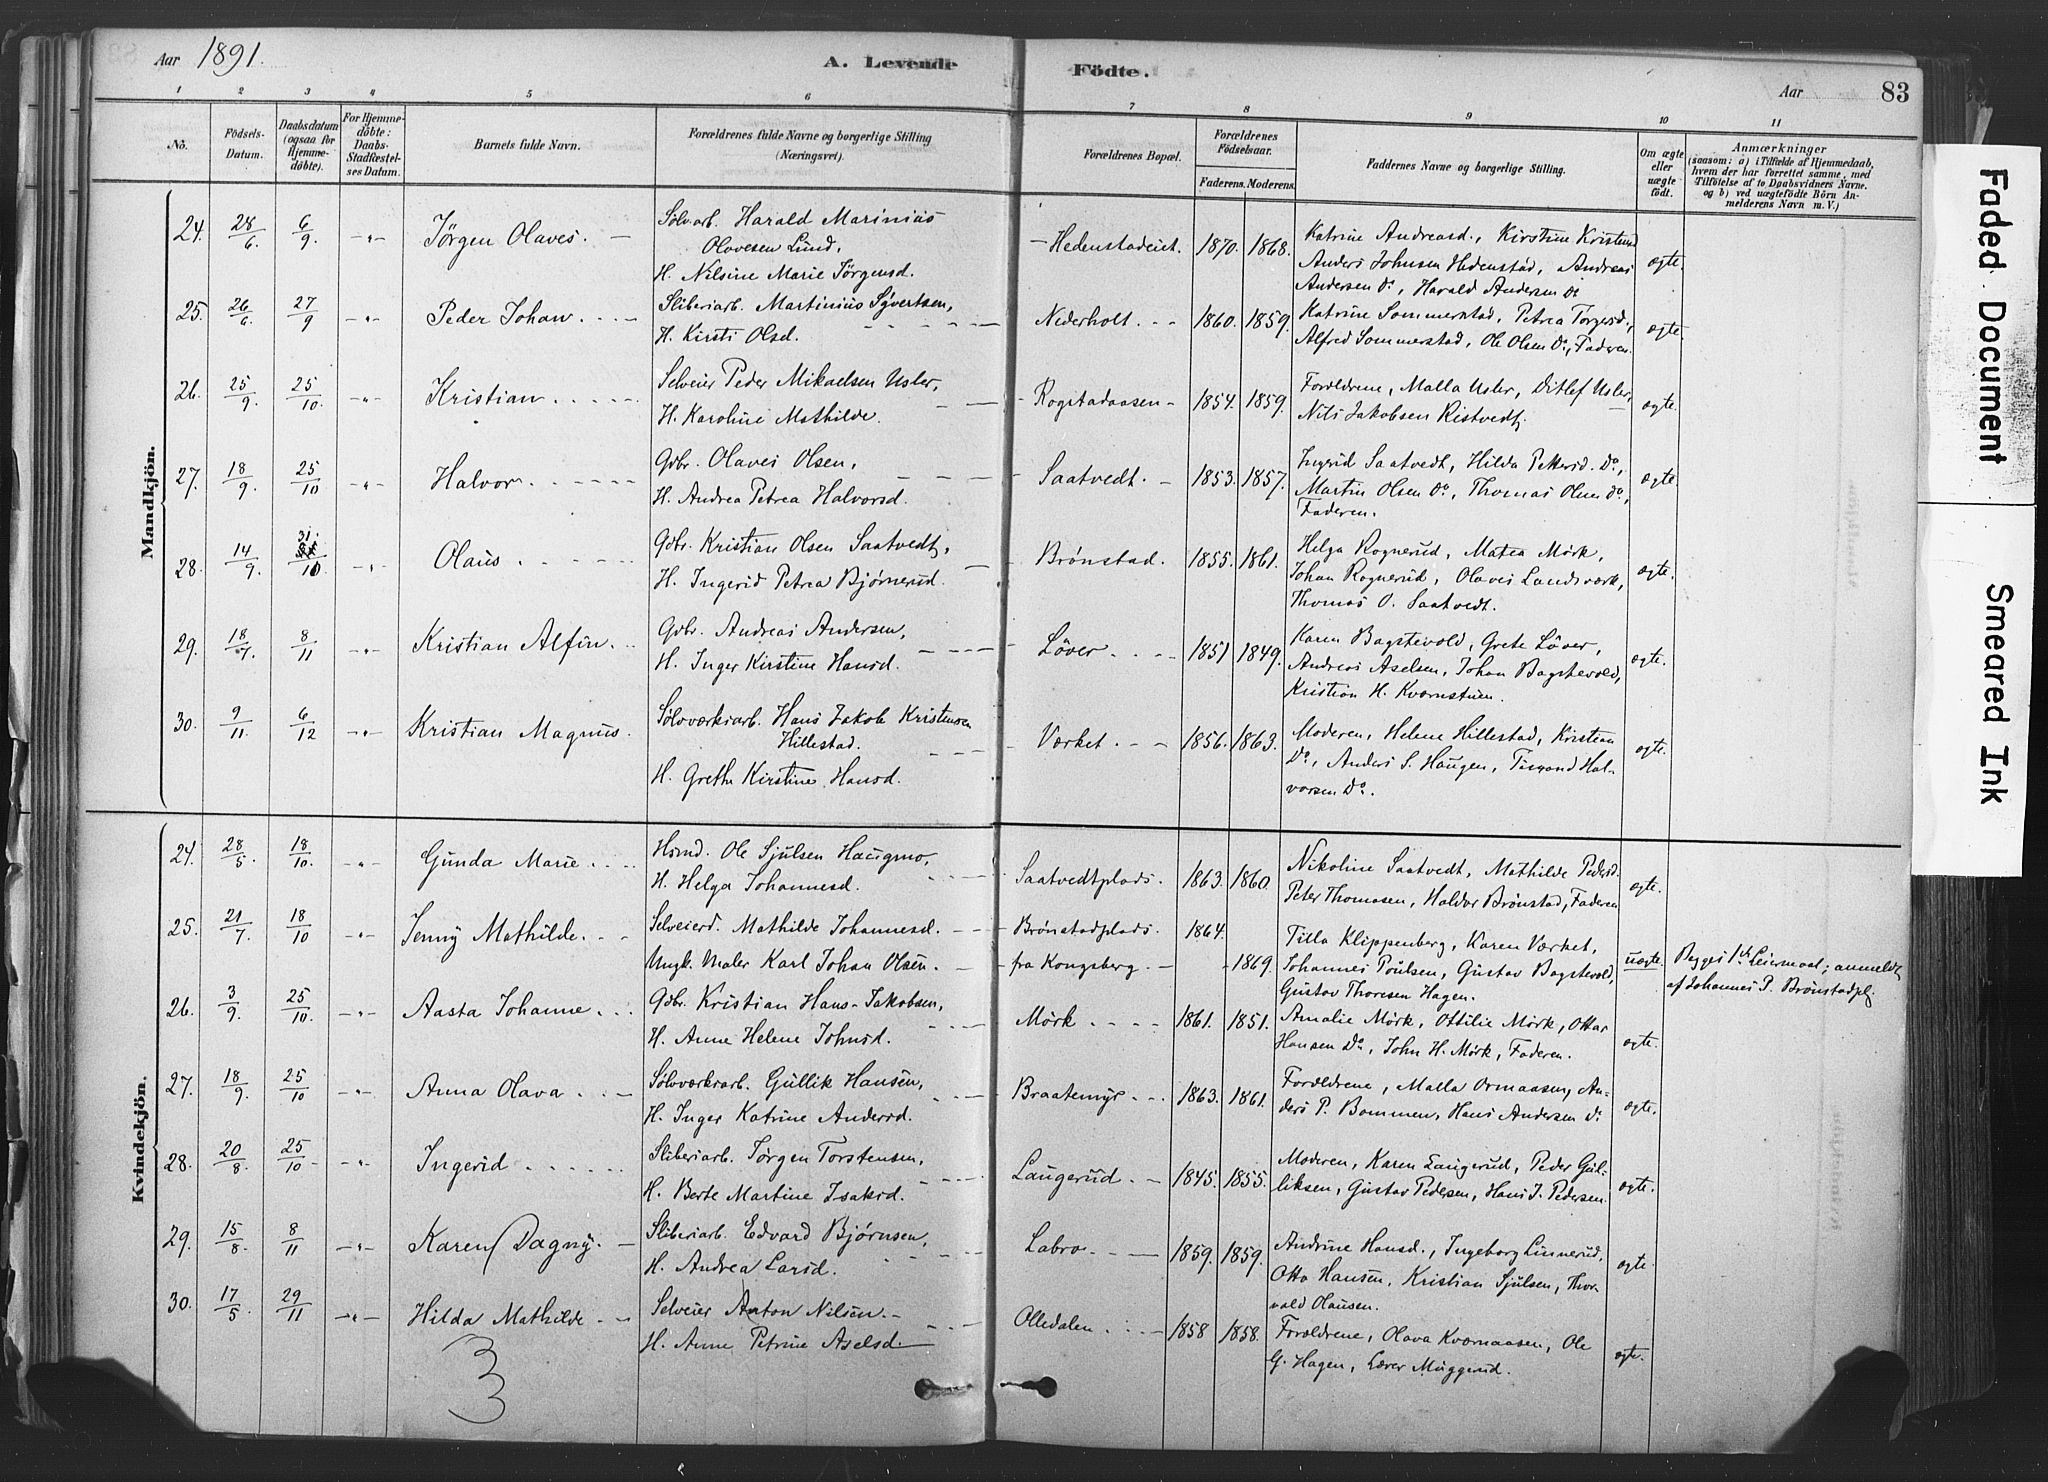 Aar 1891.
A. Levende
Födte.
Aar
83
1 2 3 4 5 6 7 8 9 10 11
No.
Födsels-Datum.
Daabsdatum (ogsaa for Hjemme-döbte).
For Hjemme-döbte: Daabs-Stadfæstel-ses Datum.
Barnets fulde Navn.
Forældrenes fulde Navne og borgerlige Stilling (Næringsvei).
Forældrenes Bopæl.
Forældrenes Födselsaar.
Faderens. Moderens.
Faddernes Navne og borgerlige Stilling.
Om ægte eller uægte födt.
Anmærkninger
(saasom: a) i Tilfælde af Hjemmedaab, hvem der har forrettet samme, med Tilföielse af to Daabsvidners Navne. og b) ved uægtefödt Börn Anmelderens Navn m. V.)
Mandkjön.
24. 28/6. 6/9. -"- Jørgen Olaves. Sølvarb. Harald Marinius
Olavesen Lund,
H. Nilsine Marie Jørgensd.
Hedenstadeiet. 1870. 1868. Katrine Andreasd., Kirstine Kristensd
Anders Johnsen Hedenstad, Andreas
Andersen Do, Harald Andersen Do
ægte.
25. 26/6. 27/9 -"- Peder Johan Sliberiarb. Martinius Syvertsen,
H. Kirsti Olsd.
Nederholt. 1860. 1859. Katrine Sommerstad, Petrea Torgersd.,
Alfred Sommerstad, Ole Olsen Do, Faderen.
ægte.
26. 25/9. 25/10. -"- Kristian Selveier Peder Mikaelsen Usler,
H. Karoline Mathilde.
Rogstadaasen 1854. 1859. Foræ­ldrene, Malla Usler, Ditlef Usler,
Nils Jakobsen Ristvedt.
ægte.
27. 18/9. 25/10 -"- Halvor Gdbr. Olaves Olsen,
H. Andrea Petrea Halvorsd.
Saatvedt. 1853. 1857. Ingerid Saatvedt, Hilda Pettersd. Do,
Martin Olsen Do, Thomas Olsen Do,
Faderen.
ægte.
28. 14/9. 31/10 -"- Olaus Gdbr. Kristian Olsen Saatvedt,
H. Ingerid Petrea Bjørnerud.
Brønstad. 1855. 1861. Helga Rognerud, Matea Mørk,
Johan Rognerud, Olaves Landsværk,
Thomas O. Saatvedt.
ægte.
29. 18/7. 8/11 -"- Kristian Alfin. Gdbr. Andreas Andersen,
H. Inger Kirstine Hansd.
Løver. 1851 1849. Karen Bagstevold, Grete Løver,
Andreas Aselsen, Johan Bagstevold,
Kristian H. Kværnstuen.
ægte.
30. 9/11. 6/12 -"- Kristian Magnus. Sølvværksarb. Hans Jakob Kristensen
Hillestad.
H. Grethe Kirstine Hansd.
Værket. 1856. 1863. Moderen, Helene Hillestad, Kristian
Do, Anders S. Haugen, Halvorsen Do.
ægte.
Kvindekjön.
24. 28/5. 18/10. -"- Gunda Marie. Hsmd. Ole Sjulsen Haugmo,
H. Helga Johannesd.
Saatvedtplads. 1863. 1860. Nikoline Saatvedt, Mathilde Pedersd.
Peter Thomasen, Haldor Brønstad, Faderen
ægte.
25. 21/7. 18/10 -"- Jenny Mathilde. Selveierd. Mathilde Johannesd.
Ungk. Maler Karl Johan Olsen.
Brønstadplads. 1864.
fra Kongsberg. 1869. Tilla Klippenberg, Karen Værket,
Johannes Poulsen, Gustav Bagstevold,
Gustav Thoresen Hagen.
uægte. Begges 1ste Leiermaal; anmeldt
af Johannes P. Brønstadpl.
26. 3/9. 25/10. -"- Aasta Johanne Gdbr. Kristian Hans-Jakobsen,
H. Anne Helene Johnsd.
Mørk. 1861. 1851. Amalie Mørk, Ottilie Mørk, Ottar
Hansen Do, John H. Mørk, Faderen.
ægte.
27. 18/9. 25/10 -"- Anna Olava Sølvværksarb. Gullik Hansen,
H. Inger Katrine Andersd.
Braatemyr 1863. 1861. Forældrene, Malla Ormaasen, An-
ders P. Bommen, Hans Andersen Do
ægte.
28. 20/8. 25/10 -"- Ingerid Sliberiarb. Jørgen Torstensen,
H. Berte Martine Isaksd.
Laugerud 1845. 1855. Moderen, Karen Laugerud, Peder Gul-
liksen, Gustav Pedersen, Hans J. Pedersen.
ægte.
29. 15/8. 8/11 -"- Karen Dagny. Sliberiarb. Edvard Bjørnsen,
H. Andrea Larsd.
Labro 1859. 1859. Andrine Hansd., Ingeborg Linnerud,
Otto Hansen, Kristian Sjulsen, Thor-
vald Olausen.
ægte.
30. 17/5. 29/11 -"- Hilda Mathilde Selveier Anton Nilsen.
H. Anne Petrine Aselsd.
Olledalen 1858 1858. Forældrene, Olava Kværnaasen, Ole
G. Hagen, Lærer Muggerud.
ægte.
3
Faded Document
Smeared Ink